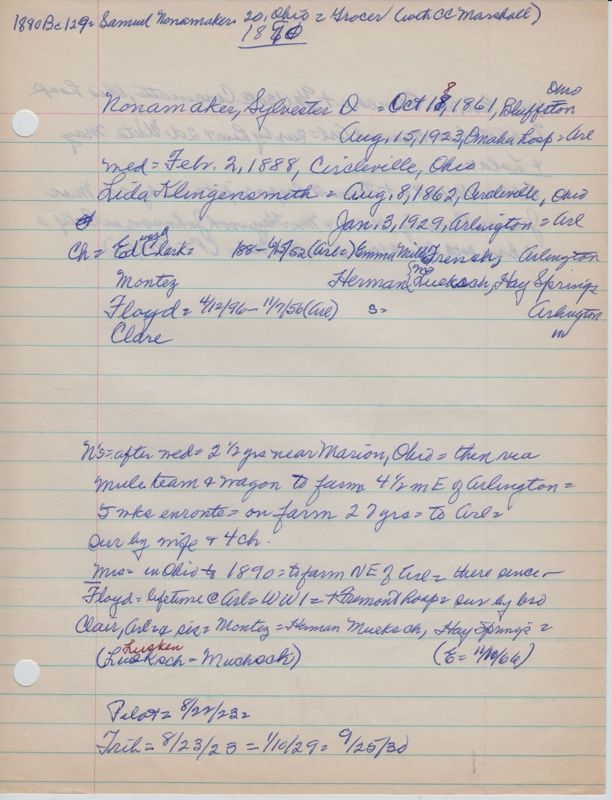 1890 Bc 129 = Samuel Nonamaker 20, Ohio = Grocer (with CC Marshall)
1890
Nonamaker, Sylvester D = Oct 18, 1861, Bluffton Ohio
Aug. 15, 1923, Omaha Hosp = Arl
med = Febr. 2, 1888, Circleville, Ohio
Lida Klingensmith = Aug. 8, 1862, Circleville, Ohio
Jan. 3, 1929, Arlington = Arl
Ch = Edward Clark = 188 - 4/5/52 (Arl =) Emma French, Arlington
Montez Herman Lueksch, Hay Springs
Floyd = 4/12/96 - 11/7/56 (Arl) s = Arlington
Clare m
N's = after med = 2 1/2 yrs near Marion, Ohio = then via
mule team & wagon to farm 4 1/2 m E of Arlington =
5 wks enroute = on farm 27 yrs = to Arl =
sur by wife & 4 ch.
Mrs = in Ohio to 1890 = to farm NE of Arl = there since -
Floyd = lifetime @ Arl = WW I = + Fremont Hosp = sur by bro
Clair, Arl = & sis = Montez = Herman Mueksch, Hay Springs =
Lusken
(Lueksch = Muchsch) (E = 11/10/66)
Pilot = 8/22/23 =
Trib = 8/23/23 = 1/10/29 = 9/25/30